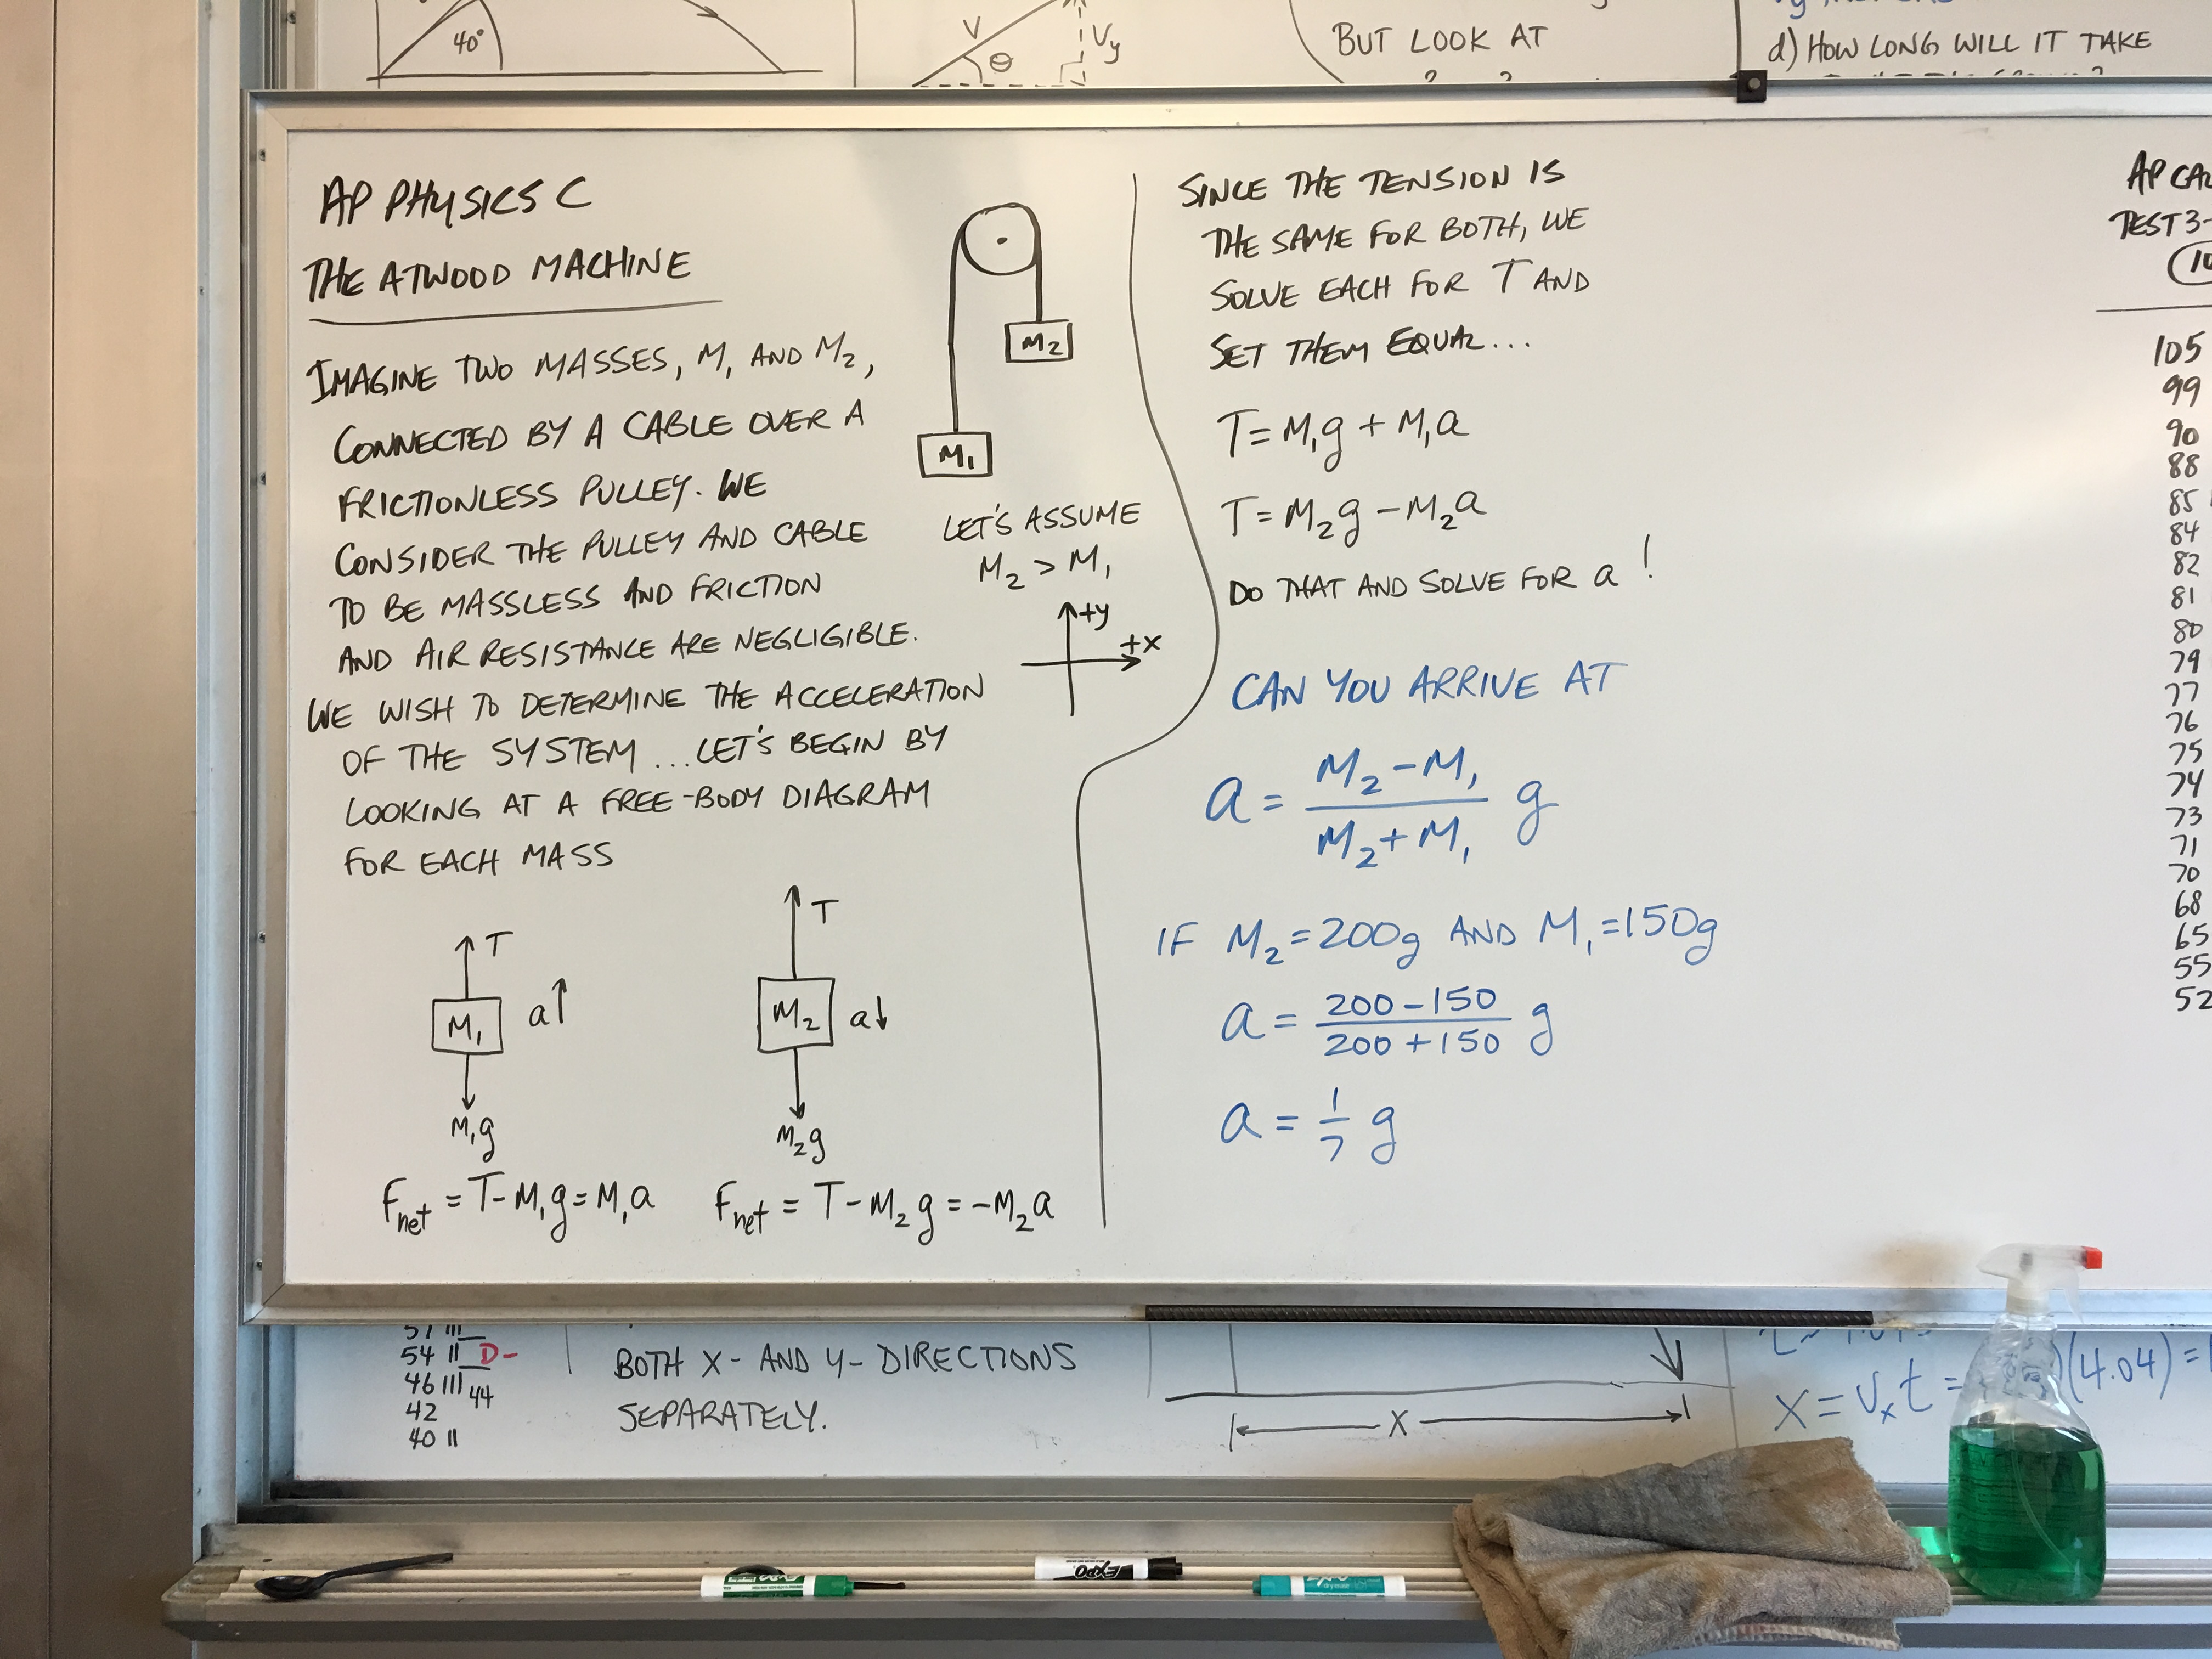 40°
V
θ
Vy
BUT LOOK AT
d) HOW LONG WILL IT TAKE
AP PHYSICS C
THE ATWOOD MACHINE
IMAGINE TWO MASSES, M₁ AND M₂,
CONNECTED BY A CABLE OVER A
FRICTIONLESS PULLEY. WE
CONSIDER THE PULLEY AND CABLE
TO BE MASSLESS AND FRICTION
AND AIR RESISTANCE ARE NEGLIGIBLE.
WE WISH TO DETERMINE THE ACCELERATION
OF THE SYSTEM ... LET'S BEGIN BY
LOOKING AT A FREE-BODY DIAGRAM
FOR EACH MASS
M₂
M₁
LET'S ASSUME
M₂ > M₁
+y
+x
T
M₁
a↑
M₁g
Fnet = T-M₁g = M₁a
T
M₂
a↓
M₂g
Fnet = T-M₂g = -M₂a
SINCE THE TENSION IS
THE SAME FOR BOTH, WE
SOLVE EACH FOR T AND
SET THEM EQUAL...
T = M₁g + M₁a
T = M₂g - M₂a
DO THAT AND SOLVE FOR a!
CAN YOU ARRIVE AT
a = (M₂-M₁)/(M₂+M₁) g
IF M₂ = 200g AND M₁ = 150g
a = (200-150)/(200+150) g
a = 1/7 g
AP CAL
TEST 3-
10
105
99
90
88
85
84
82
81
80
79
77
76
75
74
73
71
70
68
65
55
52
54 || D-
46 ||| 44
42
40 ||
BOTH X- AND Y- DIRECTIONS
SEPARATELY.
X
X = Vₓt = (4.04) =
EXPO